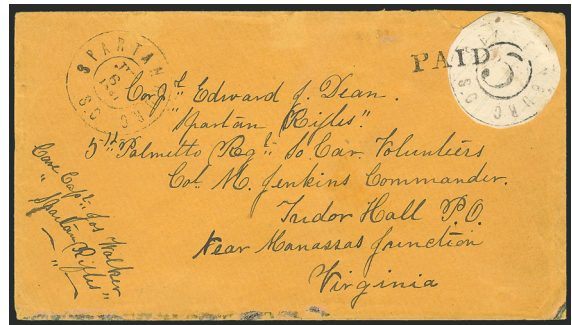 SPARTANBURG
S.C.
PAID
5
Corpl. Edward J. Dean.
"Spartan Rifles"
5th Palmetto Regt. So. Car. Volunteers
Col. M. Jenkins Commander.
Tudor Hall P.O.
Near Manassas Junction
Virginia
Care Capt. Jos Walker
"Spartan Rifles"